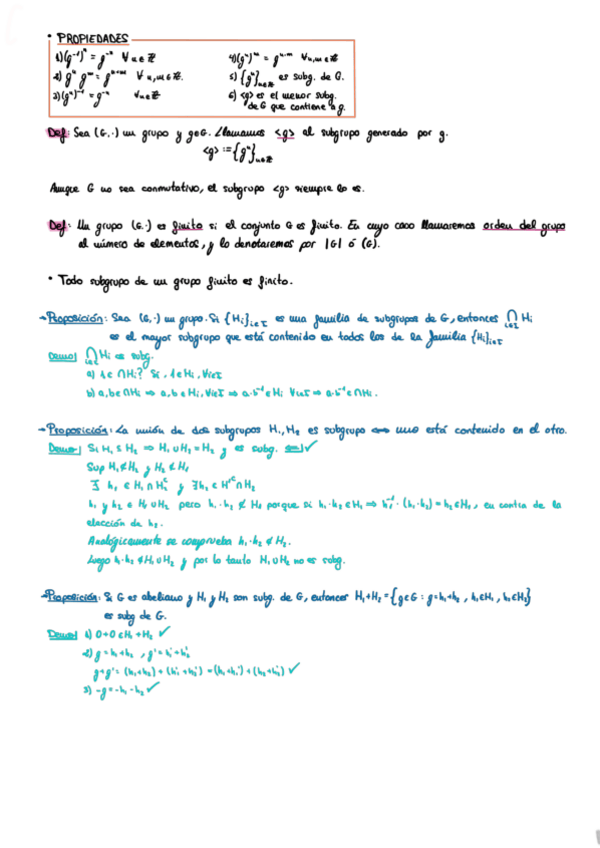 • PROPIEDADES
1) (g⁻¹)ⁿ = g⁻ⁿ ∀n∈ℤ
2) gⁿ gᵐ = gⁿ⁺ᵐ ∀n,m∈ℤ.
3) (gⁿ)⁻¹ = g⁻ⁿ ∀n∈ℤ
4) (gⁿ)ᵐ = gⁿ·ᵐ ∀n,m∈ℤ
5) {gⁿ}n∈ℤ es subg. de G.
6) <g> es el menor subg.
de G que contiene a g.
Def: Sea (G,·) un grupo y g∈G. Llamamos <g> al subgrupo generado por g.
<g> := {gⁿ}n∈ℤ
Aunque G no sea conmutativo, el subgrupo <g> siempre lo es.
Def: Un grupo (G,·) es finito si el conjunto G es finito. En cuyo caso llamaremos orden del grupo
al número de elementos, y lo denotaremos por |G| ó (G).
• Todo subgrupo de un grupo finito es finito.
→Proposición: Sea (G,·) un grupo. Si {Hᵢ}i∈I es una familia de subgrupos de G, entonces ⋂i∈I Hᵢ
es el mayor subgrupo que está contenido en todos los de la familia {Hᵢ}i∈I
Demo| ⋂i∈I Hᵢ es subg.
a) 1∈∩Hᵢ? Sí, 1∈Hᵢ, ∀i∈I
b) a,b∈∩Hᵢ ⇒ a,b∈Hᵢ, ∀i∈I ⇒ a·b⁻¹∈Hᵢ ∀i∈I ⇒ a·b⁻¹∈∩Hᵢ.
→Proposición: La unión de dos subgrupos H₁, H₂ es subgrupo ⟺ uno está contenido en el otro.
Demo| Si H₁⊆H₂ ⇒ H₁∪H₂=H₂ y es subg. ⟸)✓
Sup H₁⊄H₂ y H₂⊄H₁
∃ h₁ ∈ H₁∩H₂ᶜ y ∃h₂∈H₁ᶜ∩H₂
h₁ y h₂ ∈ H₁∪H₂ pero h₁·h₂ ∉ H₁ porque si h₁·h₂∈H₁ ⇒ h₁⁻¹·(h₁·h₂)=h₂∈H₁, en contra de la
elección de h₂.
Analógicamente se comprueba h₁·h₂∉H₂.
Luego h₁·h₂∉H₁∪H₂ y por lo tanto H₁∪H₂ no es subg.
→Proposición: Si G es abeliano y H₁ y H₂ son subg. de G, entonces H₁+H₂={g∈G : g=h₁+h₂, h₁∈H₁, h₂∈H₂}
es subg de G.
Demo| 1) 0+0∈H₁+H₂ ✓
2) g=h₁+h₂, g'=h₁'+h₂'
g+g'=(h₁+h₂)+(h₁'+h₂')=(h₁+h₁')+(h₂+h₂') ✓
3) -g=-h₁-h₂ ✓